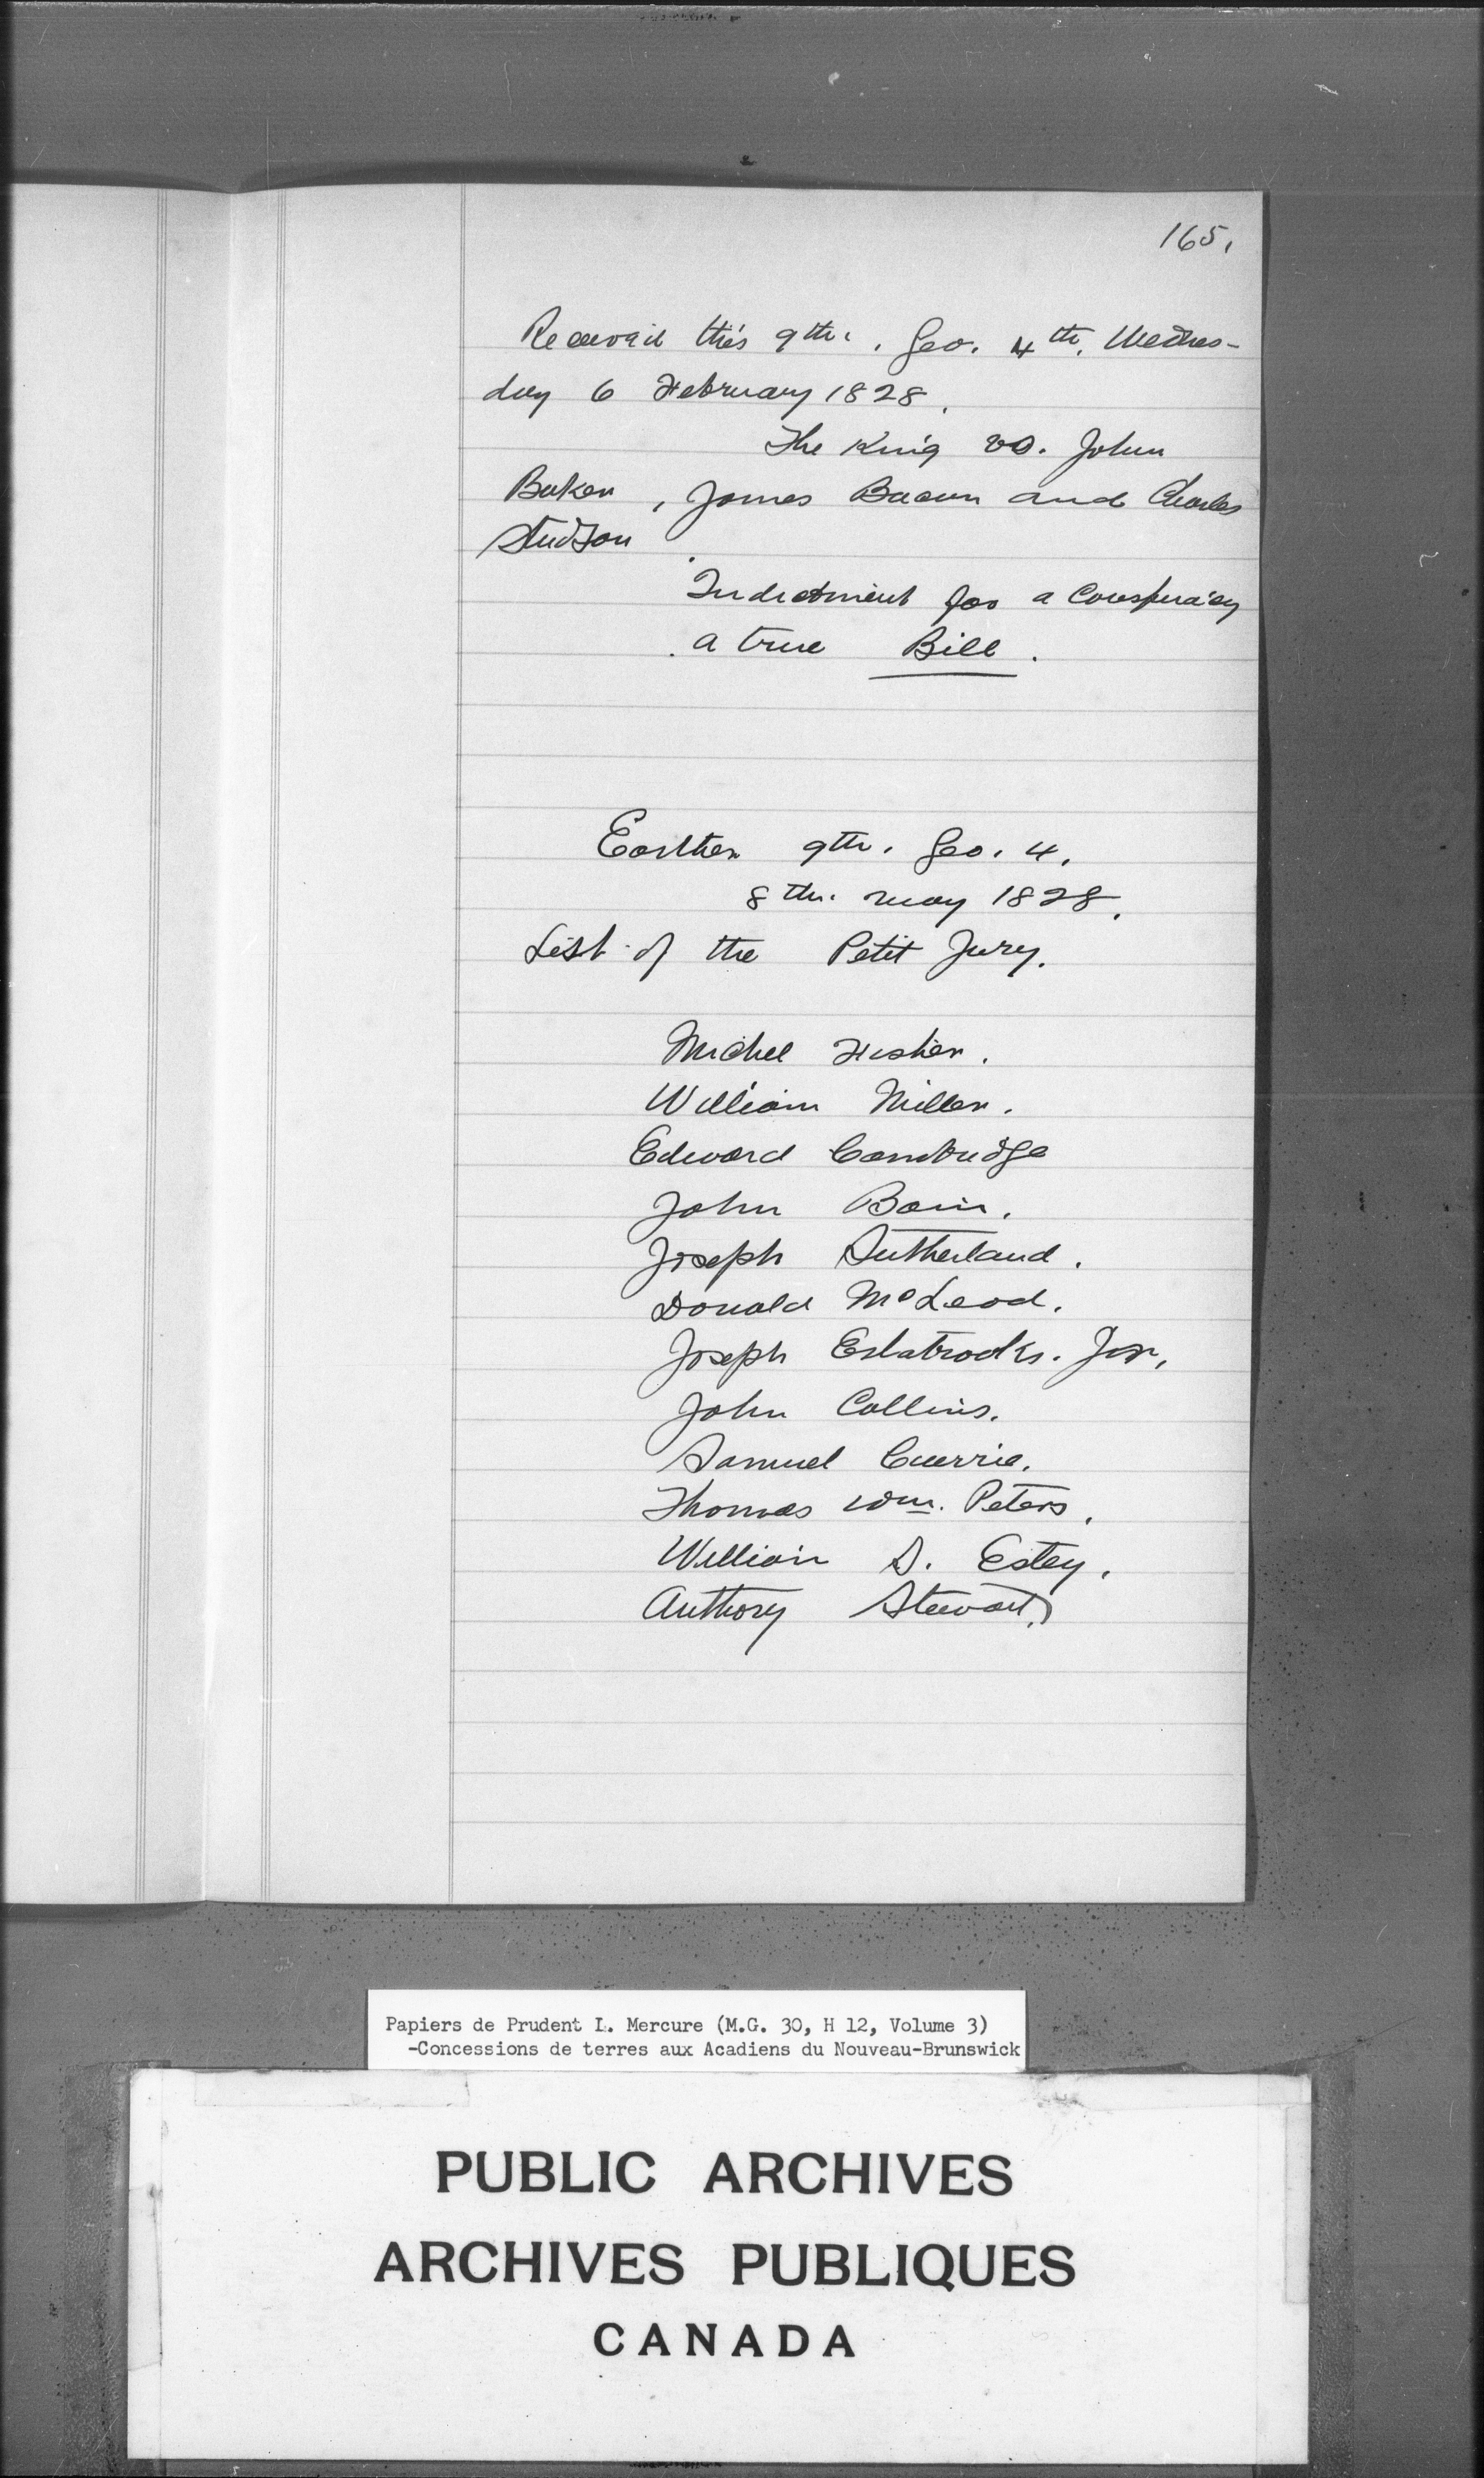 165.
Received this 9th. Geo. 4th. Wednes-
day 6 February 1828.
The King vs. John
Baker, James Bacon and Charles
Studson.
Indictment for a Conspiracy
a true Bill.
Easther 9th. Geo. 4.
8th. may 1828.
List of the Petit Jury.
Michel Fisher.
William Miller.
Edward Cambridge
John Bain.
Joseph Sutherland.
Donald McLeod.
Joseph Estabrooks. Jnr.
John Collins.
Samuel Currie.
Thomas Wm. Peters.
William S. Estey.
Anthony Stewart.
Papiers de Prudent L. Mercure (M.G. 30, H 12, Volume 3)
-Concessions de terres aux Acadiens du Nouveau-Brunswick
PUBLIC ARCHIVES
ARCHIVES PUBLIQUES
CANADA